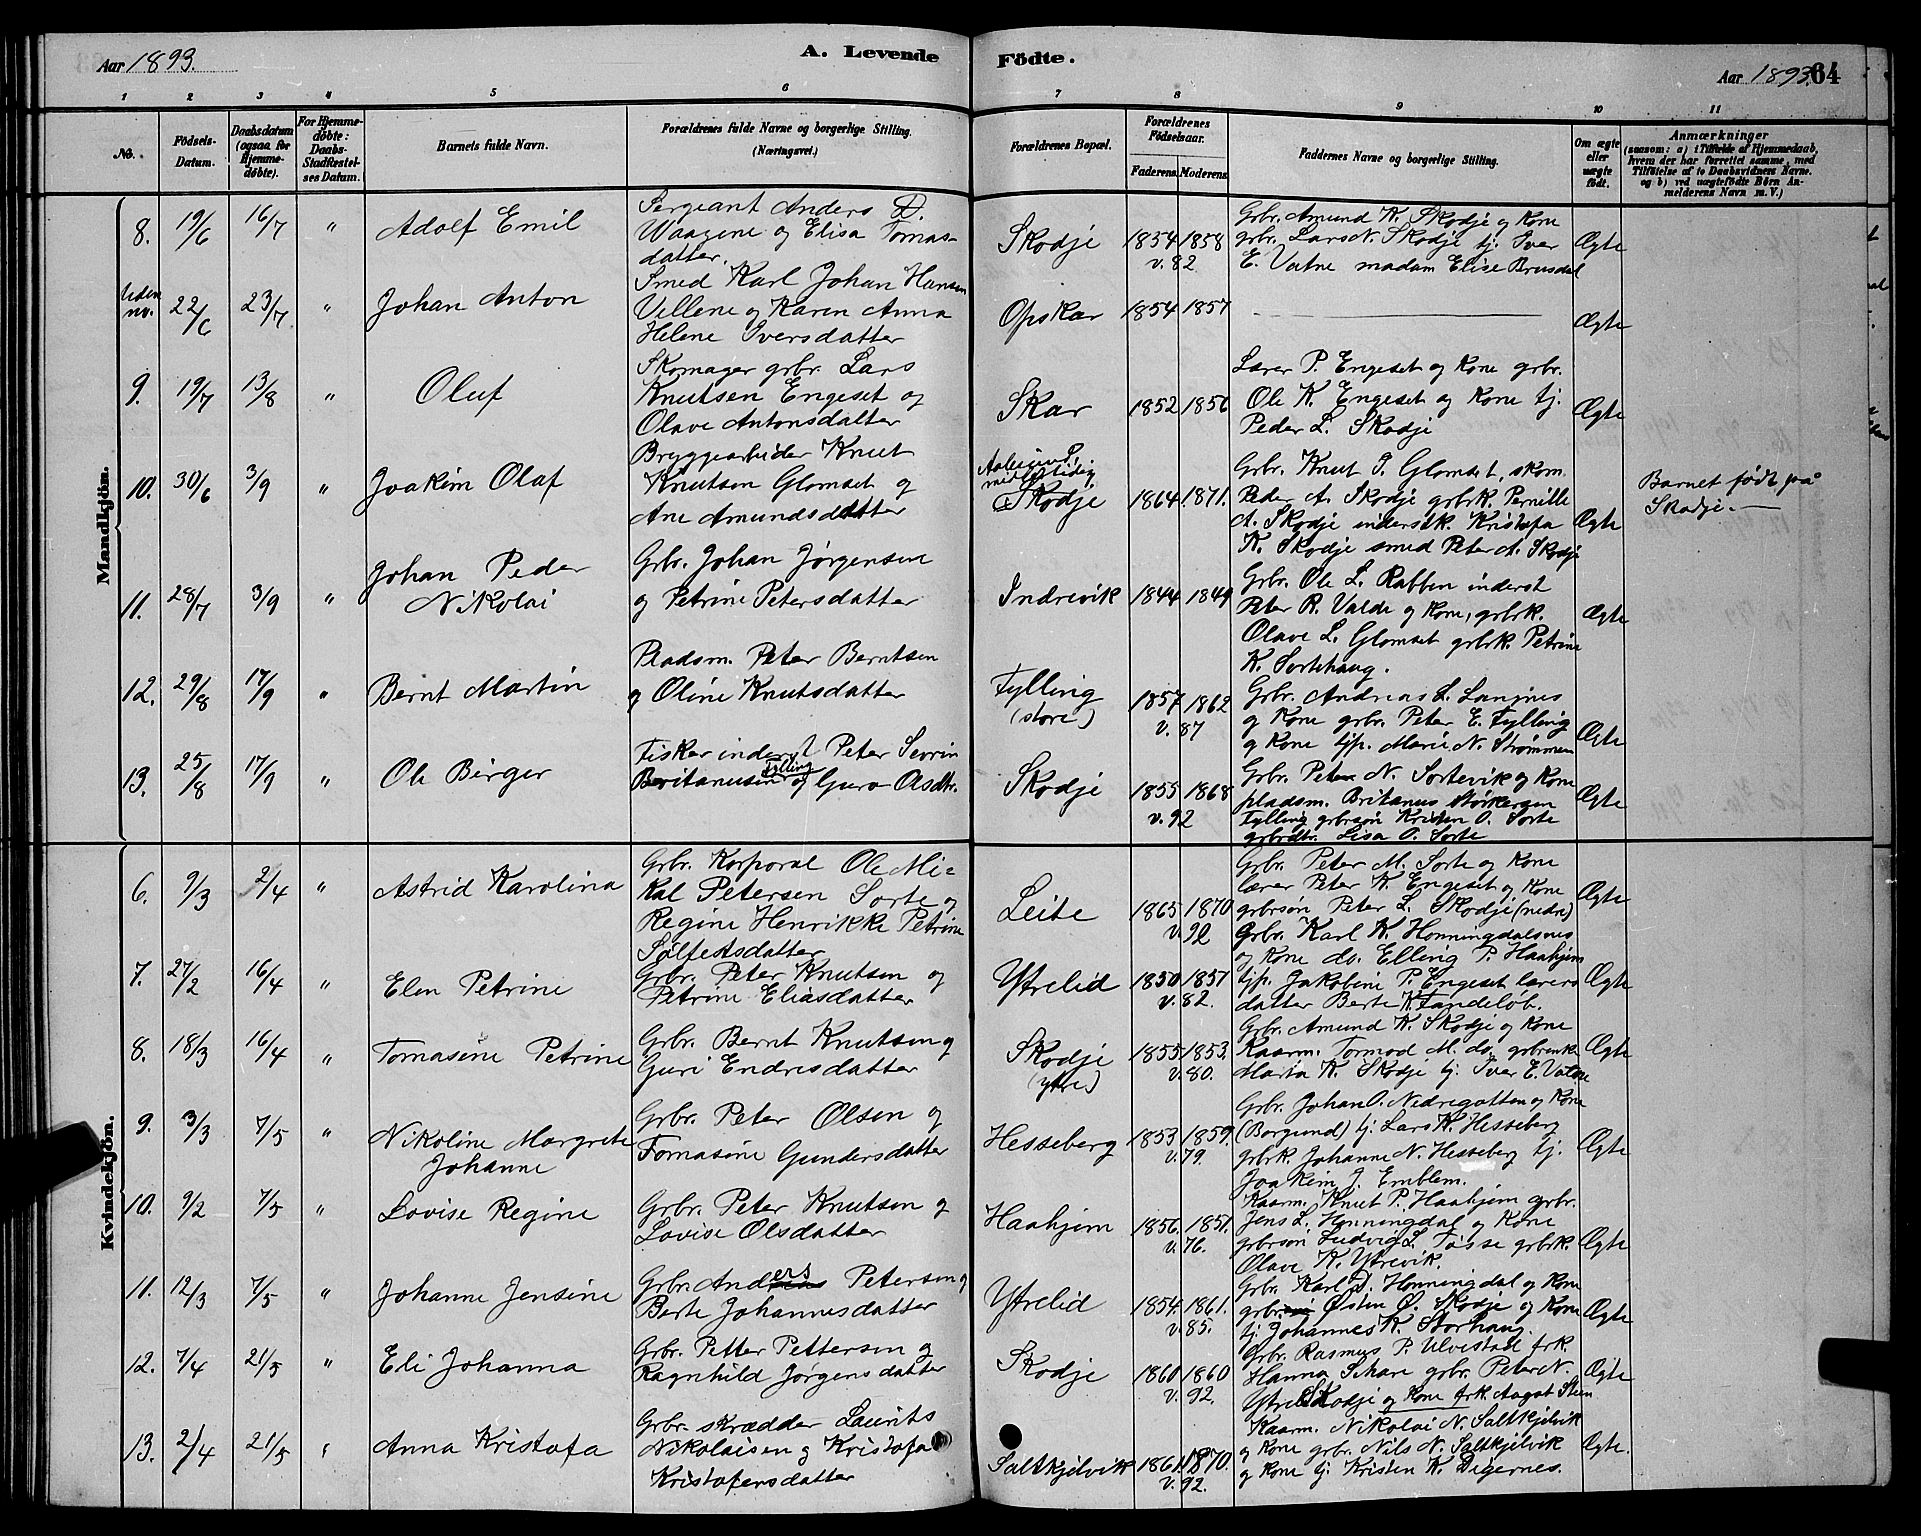 Aar 1893. A. Levende Födte. Aar 1893. 64
1 2 3 4 5 6 7 8 9 10 11
No.
Födsels-Datum.
Daabsdatum (ogsaa for Hjemme-döbte).
For Hjemme-döbte: Daabs-Stadfæstel-ses Datum.
Barnets fulde Navn.
Forældrenes fulde Navne og borgerlige Stilling. (Næringsvei.)
Forældrenes Bopæl.
Forældrenes Födselsaar.
Faderens. Moderens.
Faddernes Navne og borgerlige Stilling.
Om ægte eller uægte födt.
Anmærkninger
(saasom: a) i Tilfælde af Hjemmedaab, hvem der har forrettet samme, med Tilföielse af to Daabsvidners Navne. og b) ved uægtefödte Börn An-melderens Navn m. V.)
Mandkjön.
8. 19/6 16/7 " Adolf Emil
Sergeant Anders D.
Waagene og Elisa Tomas-
datter.
Skodje 1854 1858
v. 82
Grbr. Amund K. Skodje og Kone
grbr. Lars N. Skodje tj. Iver
E. Vatne madam Elise Brusdal
Ægte
Uden no. 22/6 23/7 " Johan Anton
Smed Karl Johan Hansen
Vellene og Karen Anna
Helene Iversdatter
Opskar 1854 1857
Ægte
9. 19/7 13/8 " Oluf
Skomager grbr. Lars
Knutsen Engeset og
Olave Antonsdatter
Skar 1852 1856
Lærer P. Engeset og Kone grbr.
Ole K. Engeset og Kone tj.
Peder L. Skodje
Ægte
10. 30/6 3/9 " Joakim Olaf
Bryggearbeider Knut
Knutsen Glomset og
Ane Amundsdatter
Aalesund,
midlertidig
Skodje 1864. 1871.
Grbr. Knut J. Glomset, skom.
Peder A. Skodje grbrk. Pernille
A. Skodje inderstk. Kristofa
K. Skodje smed Peter A. Skodje
Ægte
Barnet födt på
Skodje. —
11. 28/7 3/9 " Johan Peder
Nikolai
Grbr. Johan Jørgensen
og Petrine Petersdatter
Indrevik 1844 1849
Grbr. Ole L. Rabben inderst
Peter R. Valde og Kone, grbrk.
Olave L. Glomset grbrk. Petrine
K. Sortehaug.
Ægte
12. 29/8 17/9 " Bernt Martin
Pladsm. Peter Berntsen
og Oline Knutsdatter
Fylling
(store)
1857 1862
v. 87
Grbr. Andreas L. Langnes
og Kone grbr. Peter E. Fylling
og Kone tjp. Marie N. Strømmen
Ægte
13. 25/8 17/9 " Ole Birger
Fisker inderst Peter Sevrin
Britanusen Fylling og Guro Olsdtr.
Skodje 1855 1868
v. 92
Grbr. Peter N. Sortevik og Kone
pladsm. Britanus Størkersen
Fylling grbrsön Kristen O. Sorte
grbrdtr. Lisa O. Sorte
Ægte
Kvindekjön.
6. 9/3 2/4 " Astrid Karolina
Grbr. Korporal Ole Mi-
kal Petersen Sorte og
Regine Henrikke Petrine
Sølfestsdatter
Leite 1865 1870
v. 92
Grbr. Peter M. Sorte og Kone
lærer Peter K. Engeset og Kone
grbrsön Peter L. Skodje (nedre)
Ægte
7. 27/2 16/4 " Elen Petrine
Grbr. Peter Knutsen og
Petrine Eliasdatter
Ytrelid 1850 1851
v. 82.
Grbr. Karl K. Honningdalsnes
og Kone do. Elling P. Haahjem
tjp. Jakobine P. Engeset lærers
datter Berte K. Tandeløb.
Ægte
8. 18/3 16/4 " Tomasine Petrine
Grbr. Bernt Knutsen og
Guri Endresdatter
Skodje
(ytre)
1855 1853.
v. 80.
Grbr. Amund K. Skodje og Kone
Kaarm. Tormod M. do. grbrenke
Maria K. Skodje tj. Iver E. Vatne
Ægte
9. 3/3 7/5 " Nikoline Margrete
Johanne
Grbr. Peter Olsen og
Tomasine Gundersdatter
Hesseberg 1853 1859.
v. 79.
Grbr. Johan O. Nedregotten og Kone
(Borgund) tj. Lars K. Hesseberg
grbrk. Johanne N. Hesseberg tj.
Joakim J. Emblem.
Ægte
10. 9/2 7/5 " Lovise Regine
Grbr. Peter Knutsen og
Lovise Olsdatter
Haahjem 1856. 1851.
v. 76.
Kaarm. Knut P. Haahjem grbr.
Jens L. Honningdal og Kone
grbrsön Ludvig L. Tøsse grbrk.
Olave K. Ytrevik.
Ægte
11. 12/3 7/5 " Johanne Jensine
Grbr. Anders Petersen og
Berte Johannesdatter
Ytrelid 1854. 1861.
v. 85.
Grbr. Karl D. Honningdal og Kone
grbr. Østen O. Skodje og Kone
tj. Johannes K. Storhaug.
Ægte
12. 7/4 21/5 " Eli Johanna
Grbr. Petter Pettersen og
Ragnhild Jørgensdatter
Skodje 1860 1860
v. 92.
Grbr. Rasmus P. Ulvestad frk.
Hanna Schare grbr. Peter N.
Ytre Skodje og Kone frk. Aagot Steen
Ægte
13. 2/4 21/5 " Anna Kristofa
Grbr. skrædder Laurits
Nikolaisen og Kristofa
Kristofersdatter
Saltkjelvik 1861. 1870.
v. 92.
Kaarm. Nikolai N. Saltkjelvik
og Kone grbr. Nils N. Saltkjelvik
og Kone tj. Kristen K. Digernes.
Ægte.